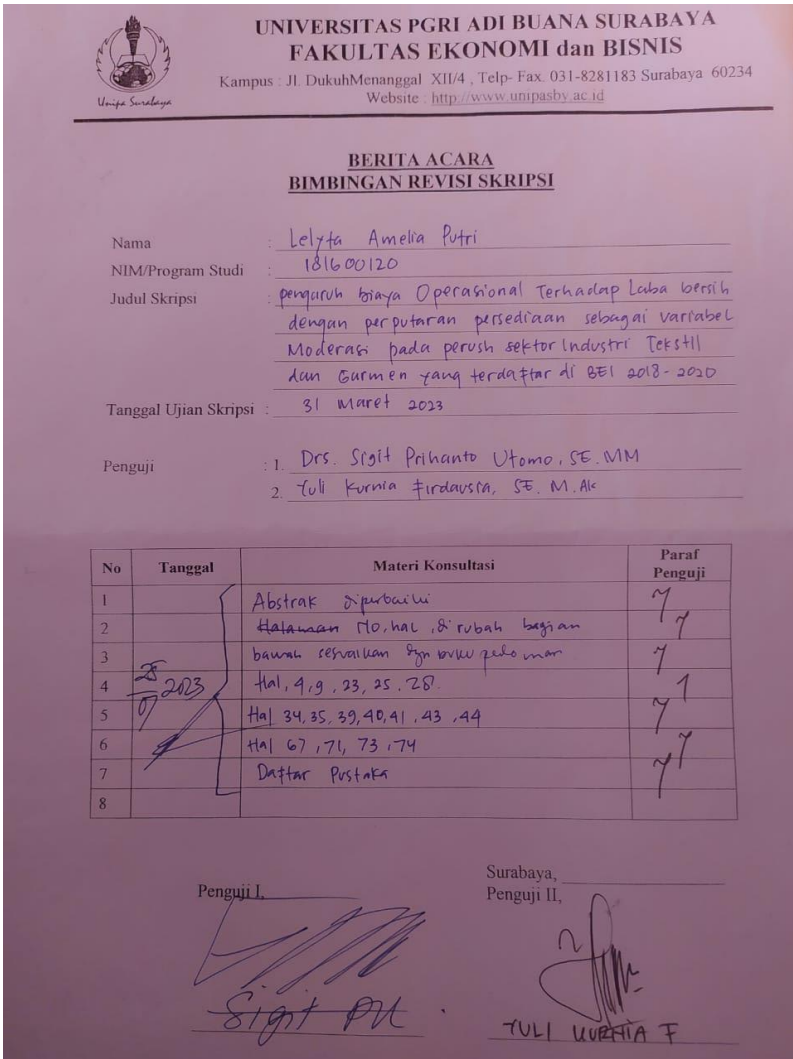 UNIVERSITAS PGRI ADI BUANA SURABAYA
FAKULTAS EKONOMI dan BISNIS
Kampus : Jl. DukuhMenanggal XII/4 , Telp- Fax. 031-8281183 Surabaya 60234
Website : http://www.unipasby.ac.id
Unipa Surabaya
BERITA ACARA
BIMBINGAN REVISI SKRIPSI
Nama : Lelyta Amelia Putri
NIM/Program Studi : 181600120
Judul Skripsi : pengaruh biaya Operasional Terhadap Laba bersih
dengan perputaran persediaan sebagai variabel
Moderasi pada perush sektor Industri Tekstil
dan Garmen yang terdaftar di BEI 2018-2020
Tanggal Ujian Skripsi : 31 Maret 2023
Penguji : 1. Drs. Sigit Prihanto Utomo, SE.MM
2. Yuli Kurnia Firdausia, SE. M.Ak
No Tanggal Materi Konsultasi Paraf Penguji
1 Abstrak diperbaiki
2 Halaman No, hal, dirubah bagian
3 bawah sesuaikan dgn buku pedoman
4 2023 Hal, 4, 9, 23, 25, 28.
5 Hal 34, 35, 39, 40, 41, 43, 44
6 Hal 67, 71, 73, 74
7 Daftar Pustaka
8
Surabaya,
Penguji I, Penguji II,
Sigit PU
YULI KURNIA F